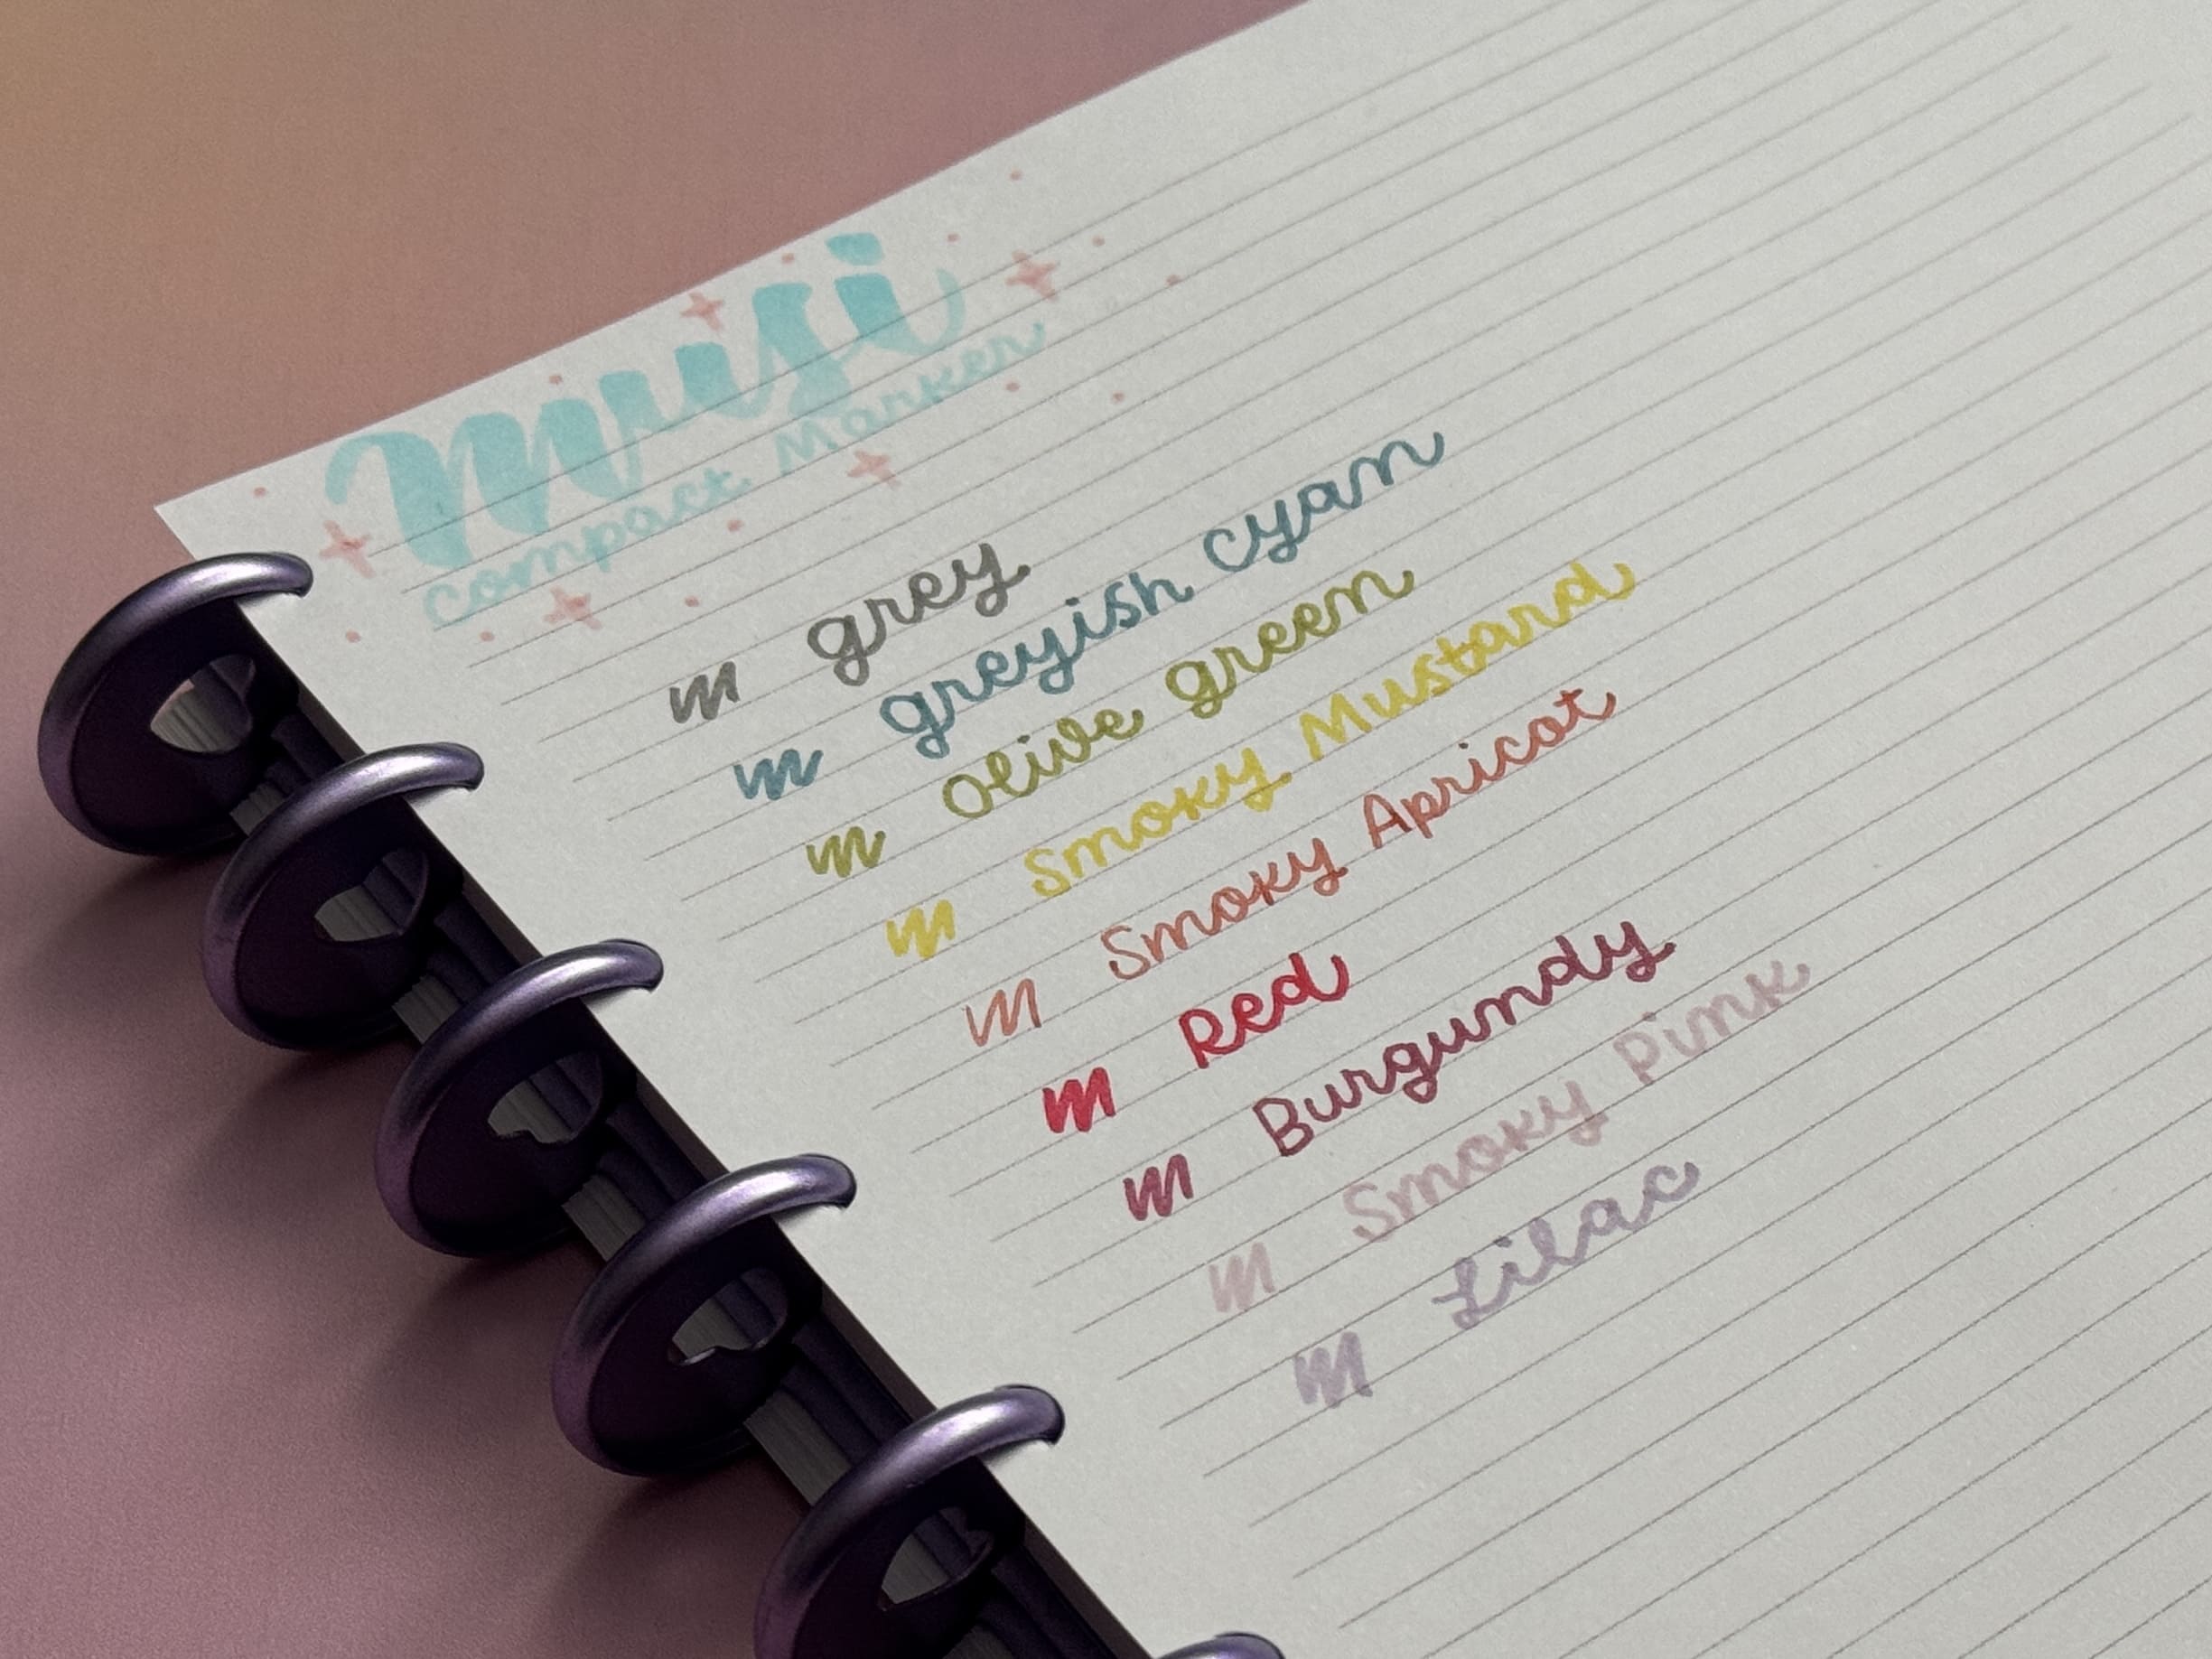 Muji
Compact Marker
grey
greyish cyan
Olive green
Smoky Mustard
Smoky Apricot
Red
Burgundy
Smoky Pink
Lilac